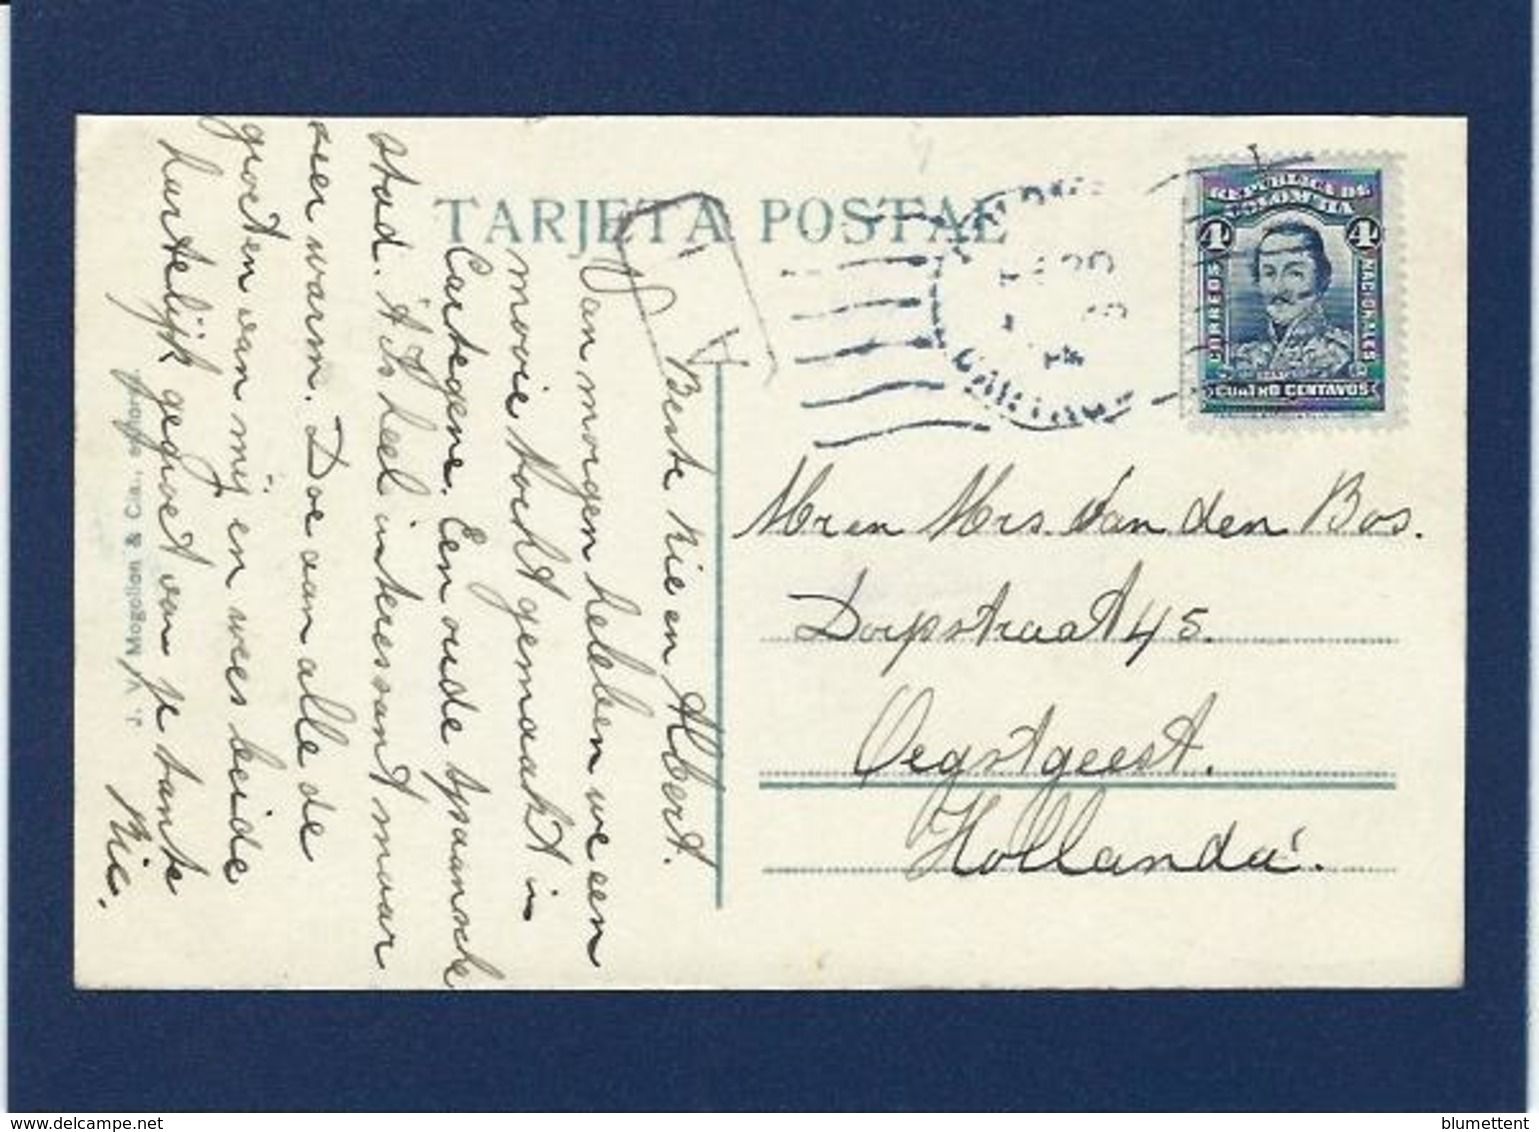 TARJETA POSTAL
Beste Nie en Albert.
Van morgen hebben we een
mooie tocht gemaakt in
Cartegene. Een oude spaansche
stad. 't Is heel interessant maar
zeer warm. Doe aan alle de
groeten van mij en wees beide
hartelijk gegroet van je tante
Nie.
J. V. Mogollon & Cia., editores
T A
REPUBLICA DE
COLOMBIA
4 4
CORREOS NACIONALES
CUATRO CENTAVOS
Mr en Mrs. Van den Bos.
Dorpstraat 45.
Oegstgeest.
Hollanda.
blumettent